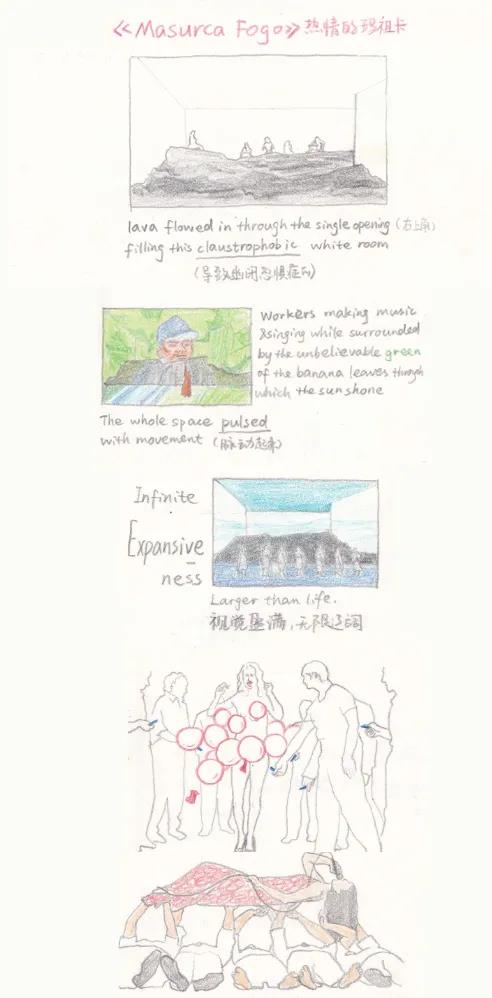 《Masurca Fogo》热情的玛祖卡
lava flowed in through the single opening (右上角)
filling this claustrophobic white room
(导致幽闭恐惧症的)
Workers making music
&singing while surrounded
by the unbelievable green
of the banana leaves through
which the sun shone
The whole space pulsed
with movement (脉动起来)
Infinite
Expansive
-
ness
Larger than life.
视觉盈满,无限辽阔